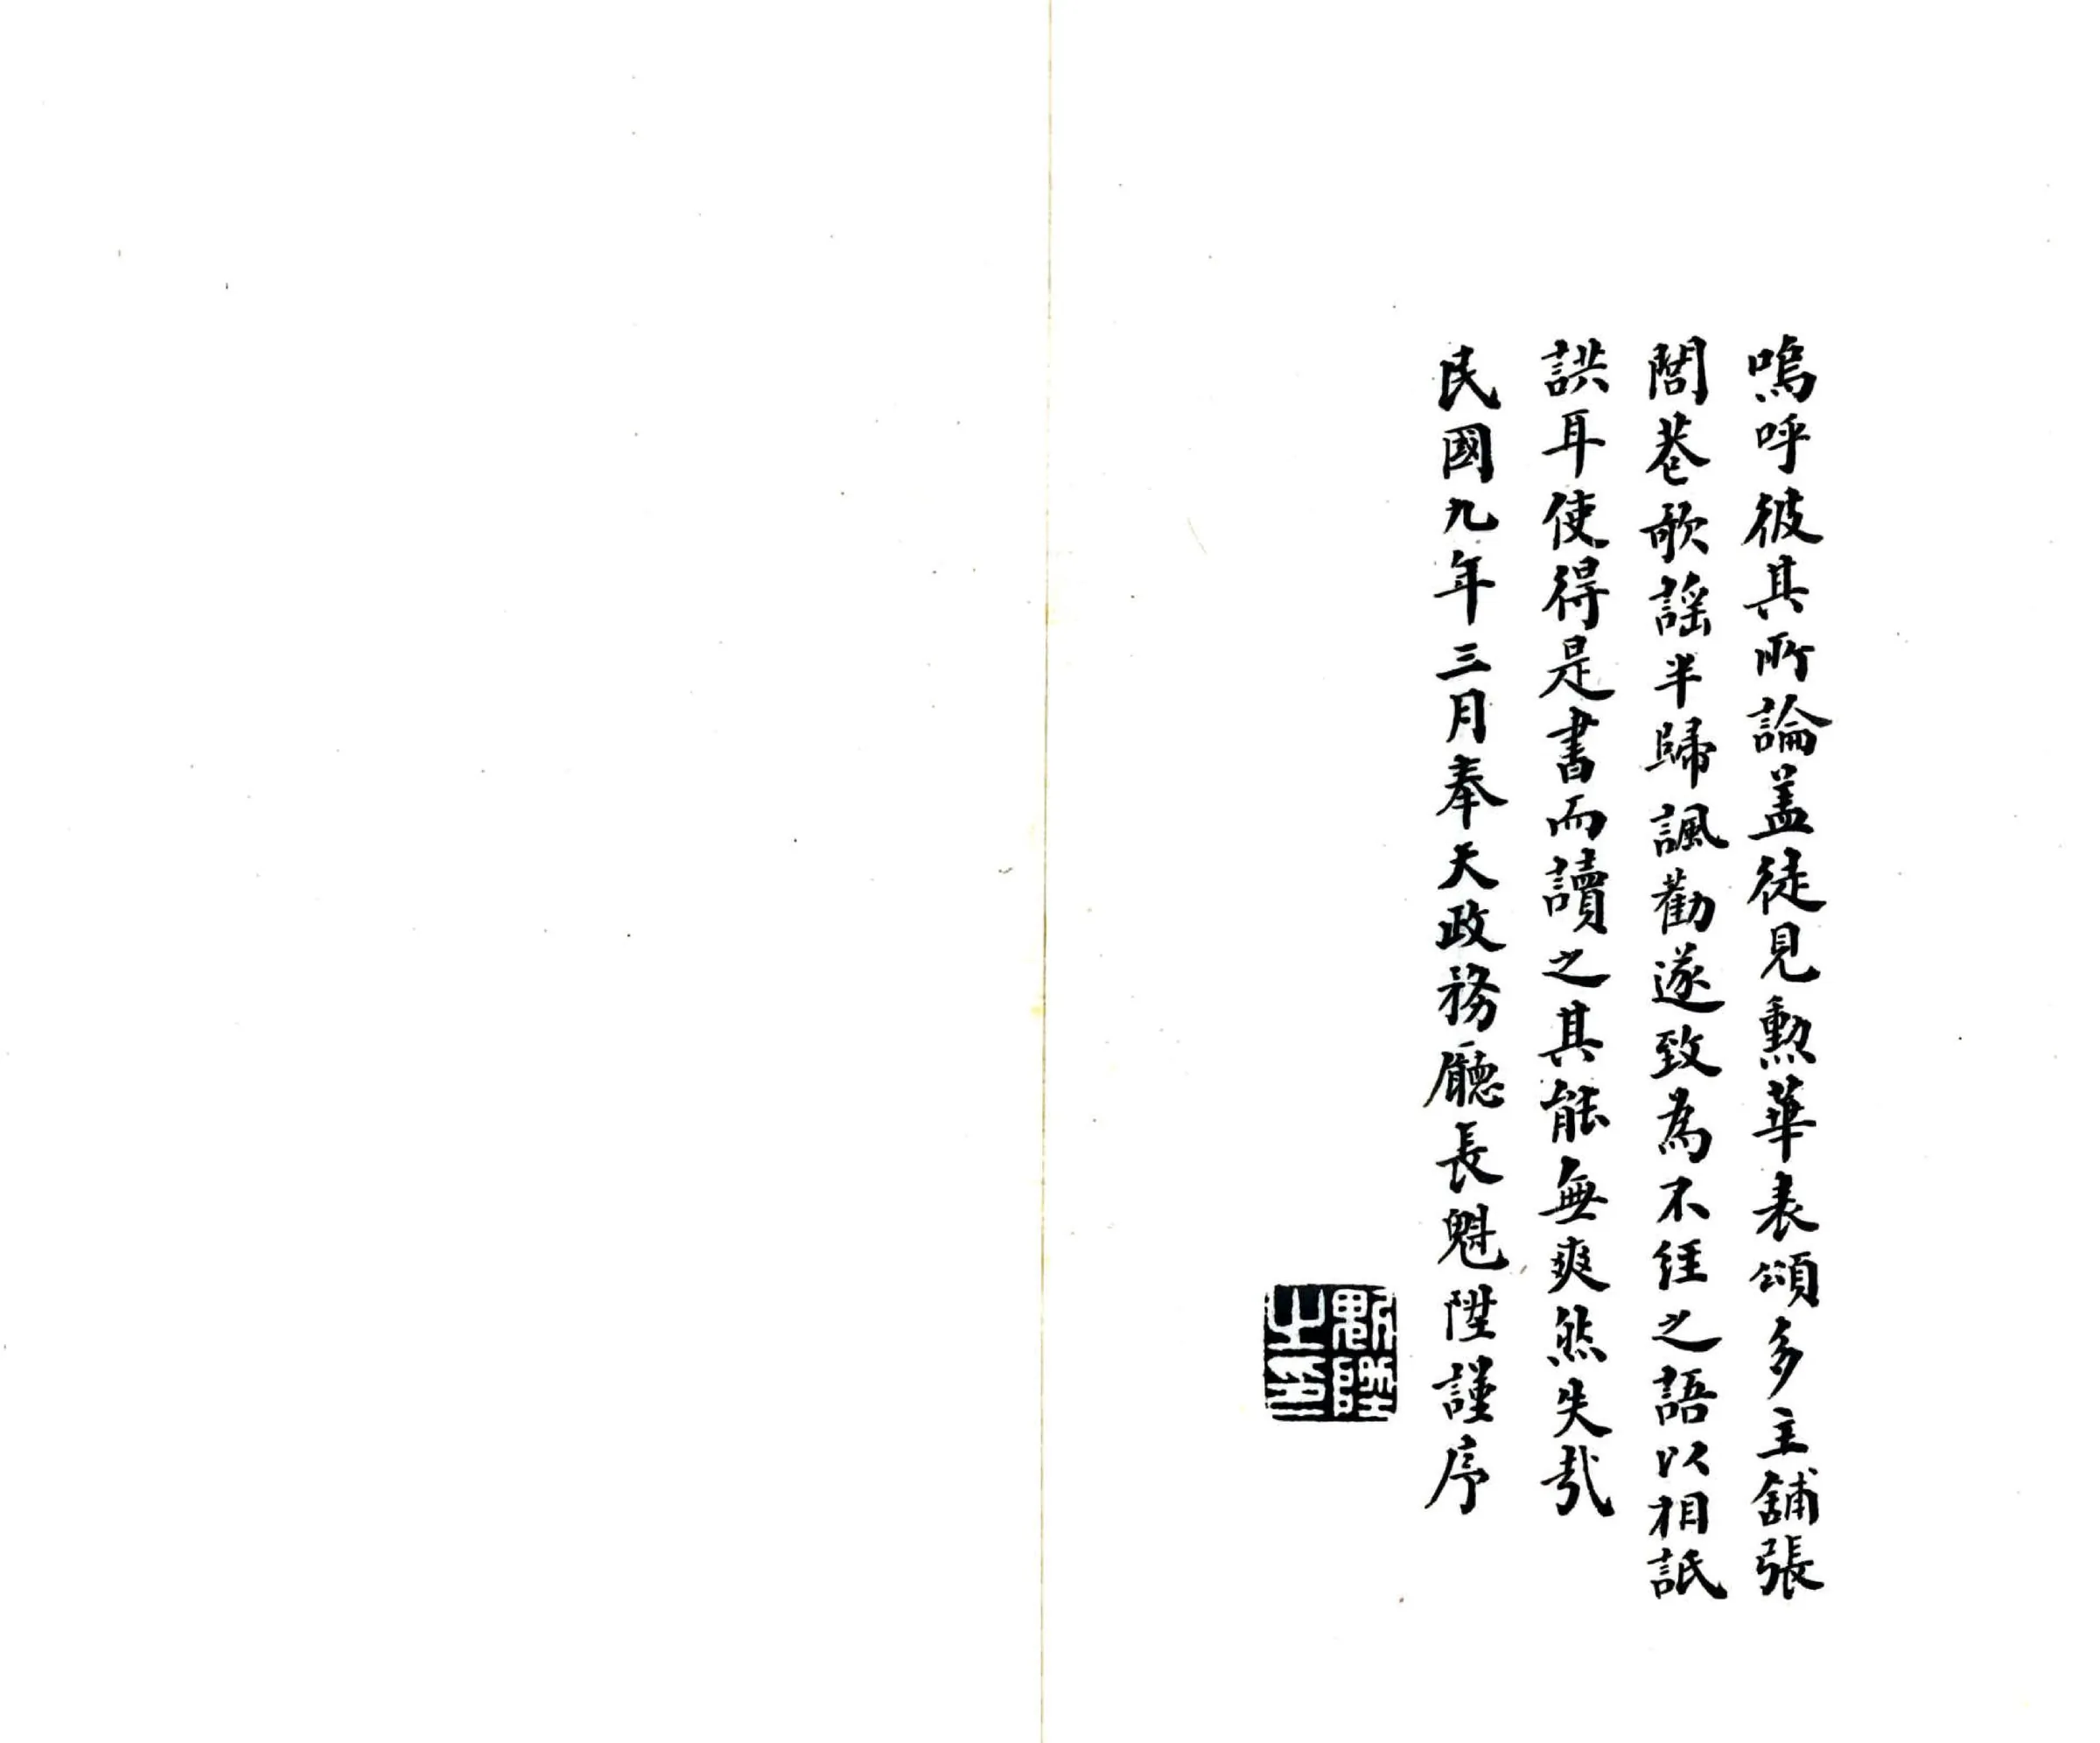 嗚呼彼其所論盖徒見勲華表頌多主舖張
閭巷歌謡半歸諷勸遂致為不经之語以相詆
訌耳使得是書而讀之其能無爽然失哉
民國九年三月奉天政務廳長魁陞謹序
魁陞之印